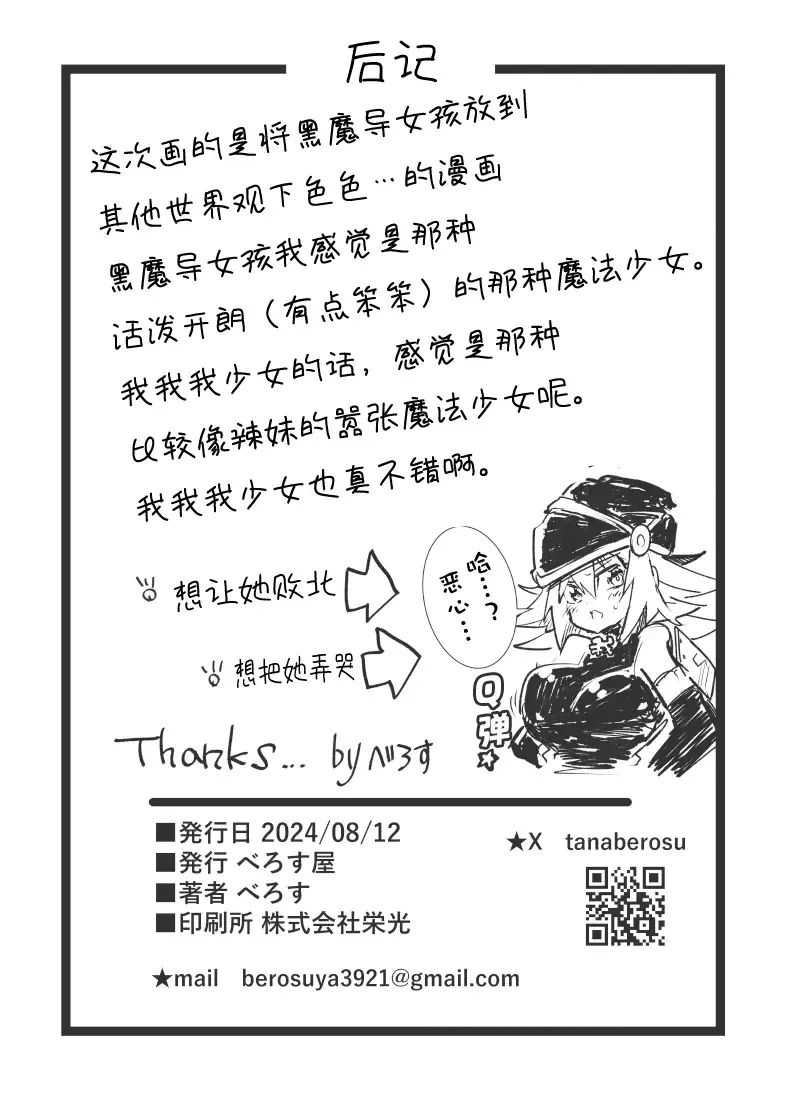 后记
这次画的是将黑魔导女孩放到
其他世界观下色色…的漫画
黑魔导女孩我感觉是那种
活泼开朗（有点笨笨）的那种魔法少女。
我我我少女的话，感觉是那种
比较像辣妹的嚣张魔法少女呢。
我我我少女也真不错啊。
想让她败北
哈……?
恶心…
想把她弄哭
我
Q弹★
Thanks... by べろす
■発行日 2024/08/12
■発行 べろす屋
■著者 べろす
■印刷所 株式会社栄光
★X tanaberosu
★mail berosuya3921@gmail.com